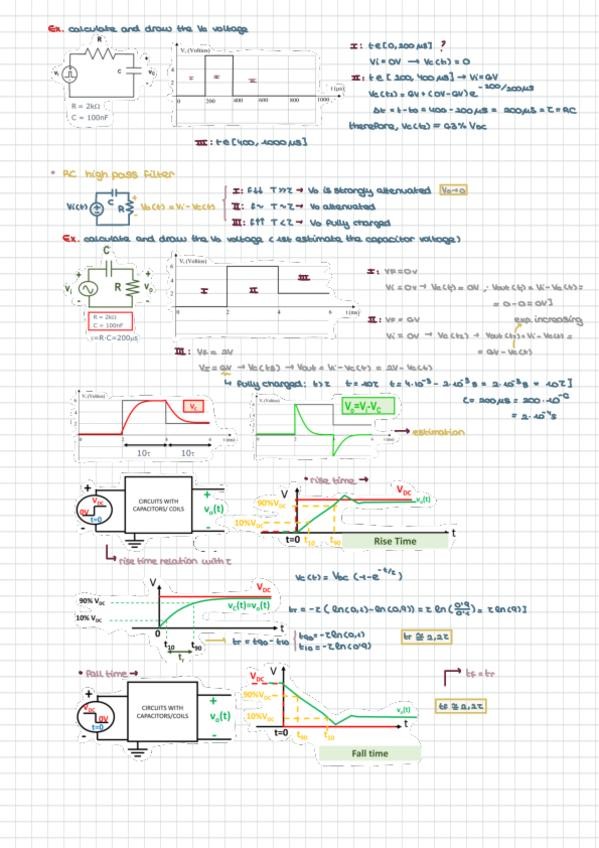 Ex. calculate and draw the Vo voltage
R
C
Vi
Vo
R = 2kΩ
C = 100nF
Vi (Volties)
6
4
2
0
I
II
III
0 200 400 600 800 1000
t (μs)
I: t∈[0, 200μs] ?
Vi = 0V → Vc(t) = 0
II: t∈[200, 400μs] → Vi = 6V
Vc(t2) = 6V + (0V-6V)e^-200/200μs
Δt = t-to = 400 - 200μs = 200μs = τ = RC
therefore, Vc(t) = 63% VDC
III: t∈[400, 1000μs]
• RC high pass filter
Vi(t)
C
R
Vo(t) = Vi-Vc(t)
I: f↓↓ T>>τ → Vo is strongly attenuated
Vo→0
II: f~ T~τ → Vo attenuated
III: f↑↑ T<τ → Vo fully charged
Ex. calculate and draw the Vo voltage (1st estimate the capacitor voltage)
C
+
Vi
R
Vo
-
R = 2kΩ
C = 100nF
τ=R·C=200μs
Vi (Volties)
6
4
2
0
I
II
III
0 2 4 6
t (ms)
I: VF = 0V
Vi = 0V → Vc(t) = 0V ; Vout(t) = Vi-Vc(t) =
= 0-0 = 0V]
II: VF = 6V
exp. increasing
Vi = 0V → Vc(t2) → Vout(t) = Vi-Vc(t) =
= 6V - Vc(t)
III: VF = 2V
VI = 6V → Vc(t2) → Vout = Vi-Vc(t) = 2V - Vc(t)
↳ fully charged: t>τ t = 10τ t = 4·10^-3 - 2·10^-3 s = 2·10^-3 s = 10τ]
τ = 200μs = 200·10^-6
= 2·10^-4 s
Vi (Volties)
6
4
2
0
Vc
2 4 6
t (ms)
10τ
10τ
Vi (Volties)
Vo=Vi-VC
→ estimation
+
VDC
0V
t=0
-
CIRCUITS WITH
CAPACITORS/ COILS
+
vo(t)
-
• rise time →
V
VDC
vo(t)
90%VDC
10%VDC
t=0 t10 t90 t
Rise Time
↳ rise time relation with τ
Vc(t) = VDC (1-e^-t/τ)
V
VDC
90% VDC
vC(t)=vo(t)
10% VDC
0
t
t10
t90
tr
→ tr = t90 - t10
t90 = -τln(0,1)
t10 = -τln(0,9)
tr = -τ(ln(0,1)-ln(0,9)) = τln(0,9/0,1) = τln(9)]
tr ≅ 2,2τ
• fall time →
+
VDC
0V
t=0
-
CIRCUITS WITH
CAPACITORS/COILS
+
vo(t)
-
V
VDC
90%VDC
10%VDC
vo(t)
t=0 t90 t10 t
Fall time
tf = tr
tf ≅ 2,2τ